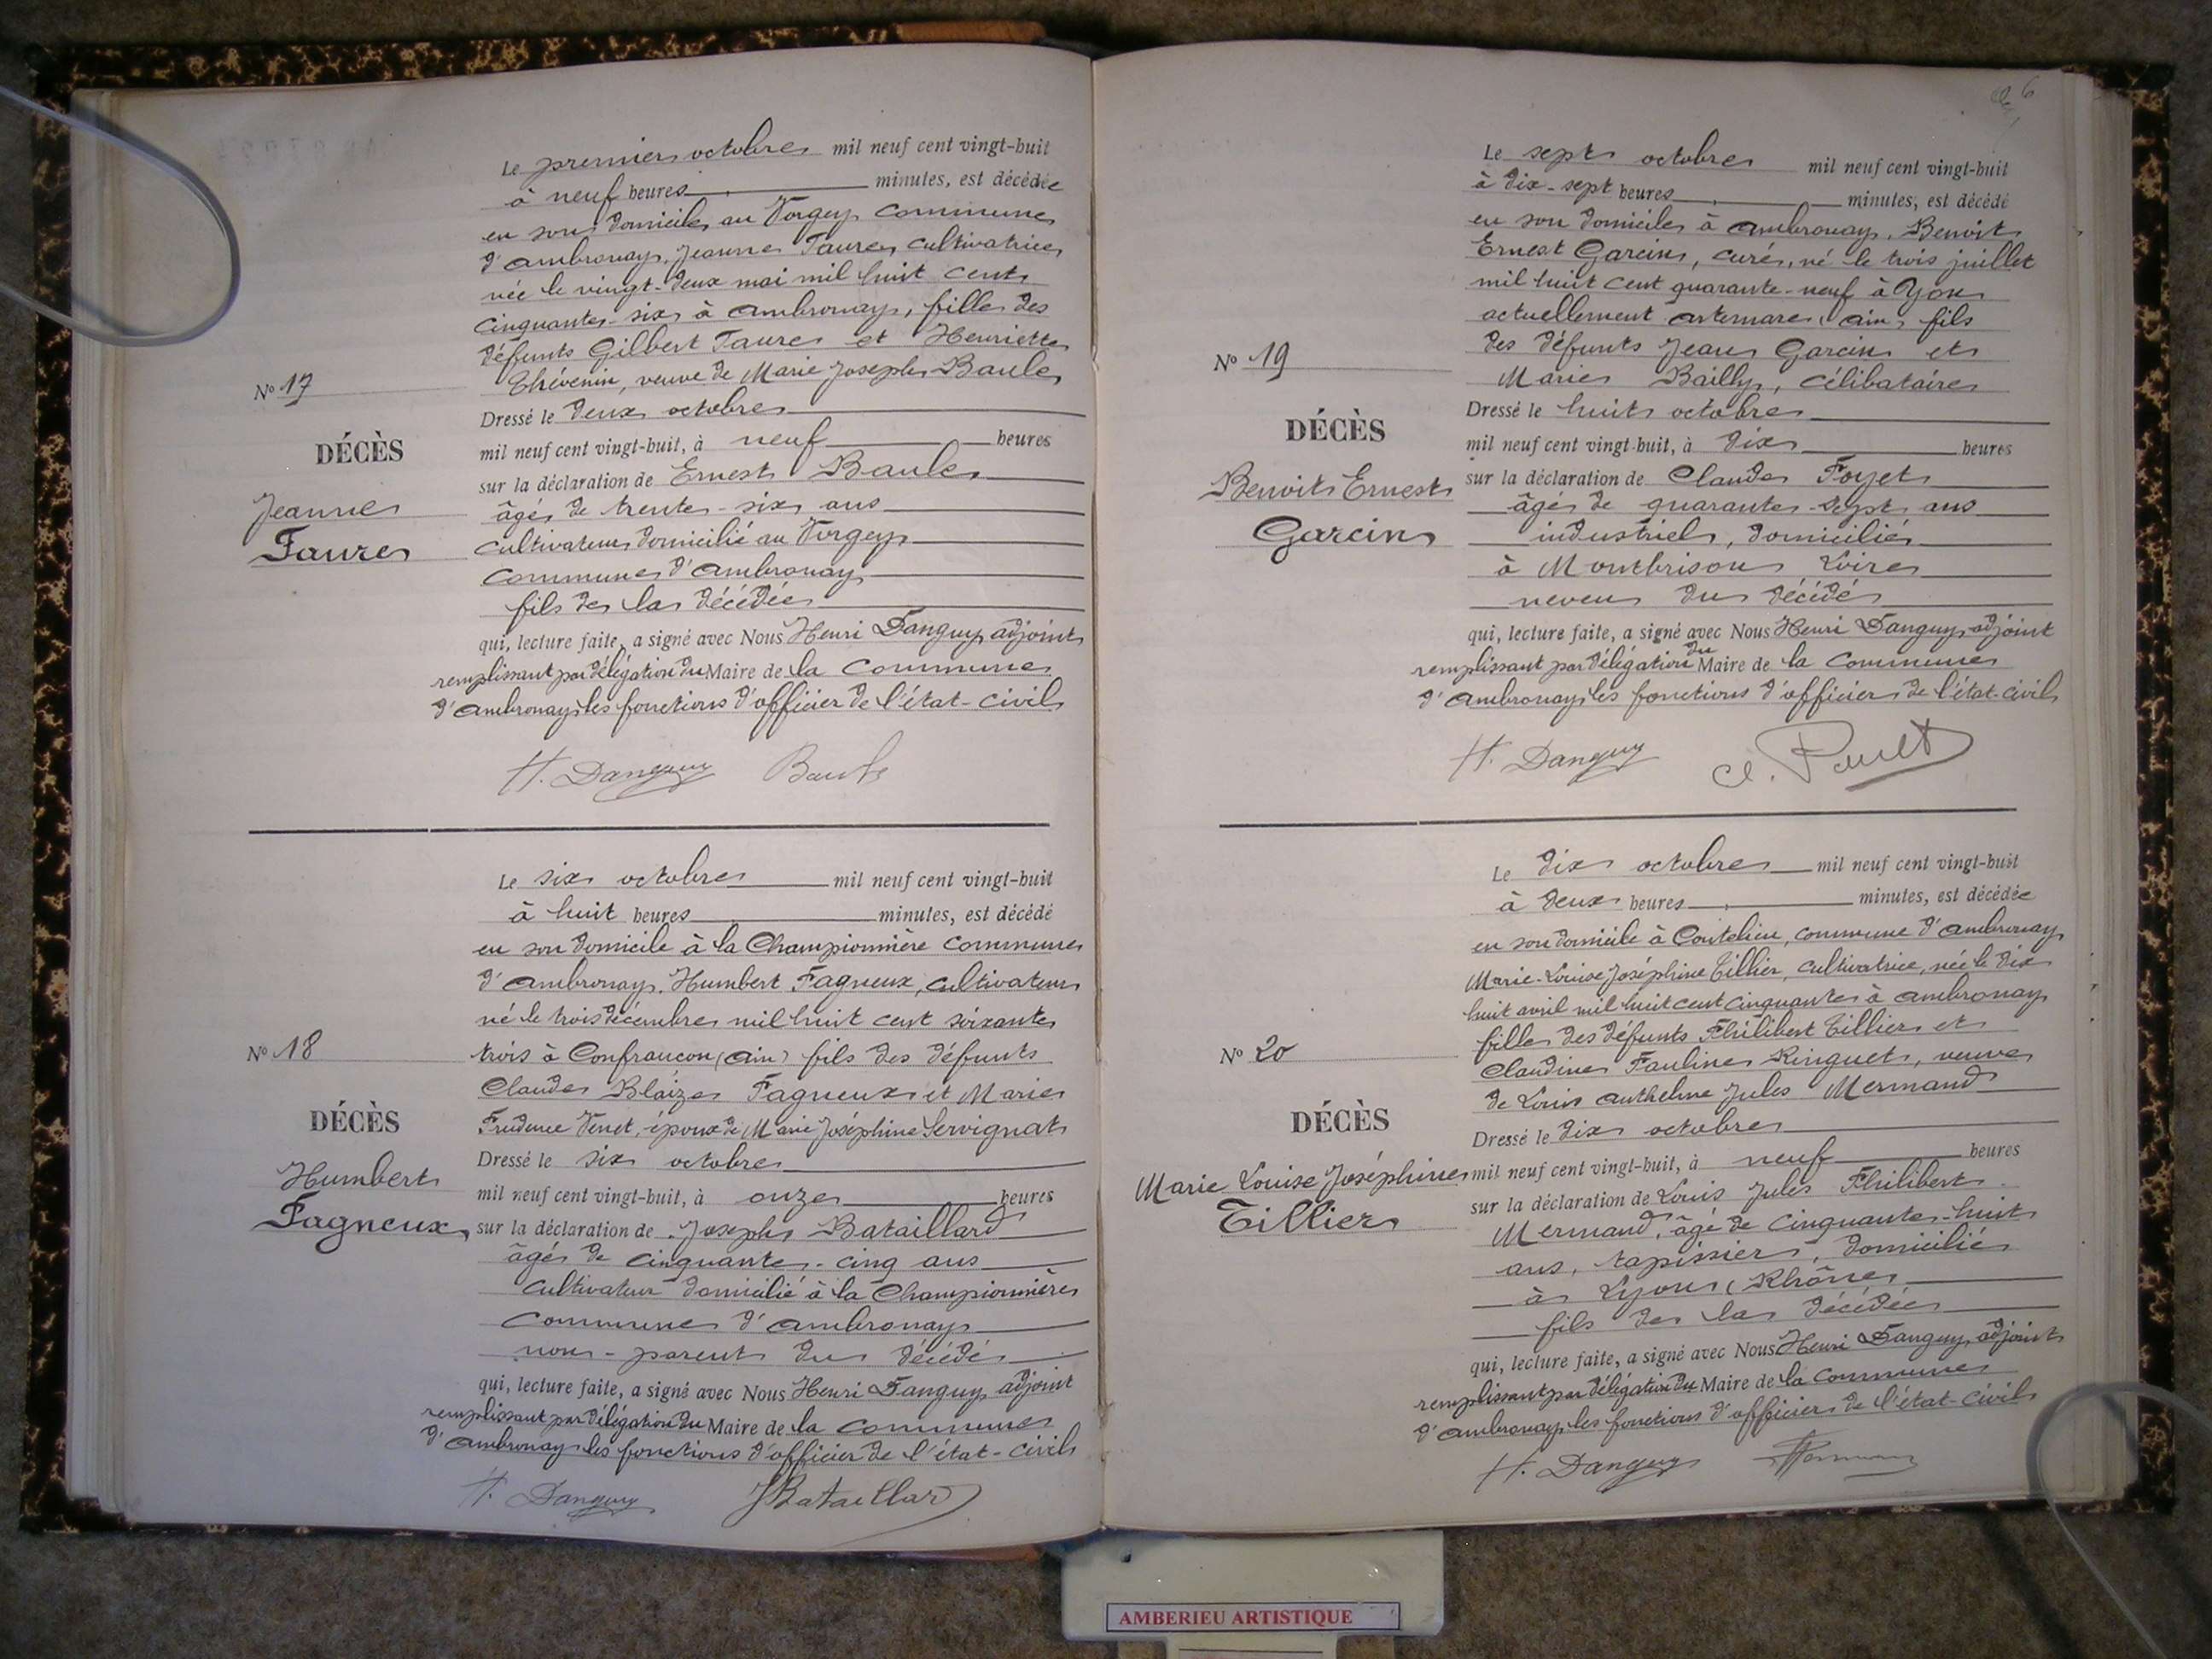 Le premier octobre mil neuf cent vingt-huit
à neuf heures minutes, est décédée
en son domicile au Vorgey commune
d'Ambronay, Jeanne Faure, cultivatrice
née le vingt-deux mai mil huit cent
cinquante-six à Ambronay, fille des
défunts Gilbert Faure et Henriette
Thévenin, veuve de Marie Joseph Baule
No 17
DÉCÈS
Jeanne
Faure
Dressé le deux octobre
mil neuf cent vingt-huit, à neuf heures
sur la déclaration de Ernest Baule
âgé de trente-six ans
cultivateur domicilié au Vorgey
commune d'Ambronay
fils de la décédée
qui, lecture faite, a signé avec Nous Henri Danguy adjoint
remplissant par délégation du Maire de la commune
d'Ambronay les fonctions d'officier de l'état-civil
H. Danguy Baule
Le six octobre mil neuf cent vingt-huit
à huit heures minutes, est décédé
en son domicile à la Championnière commune
d'Ambronay, Humbert Fagneux, cultivateur
né le trois décembre mil huit cent soixante
trois à Confrançon (Ain) fils des défunts
Claude Blaize Fagneux et Marie
Prudence Venet, époux de Marie Joséphine Servignat
No 18
DÉCÈS
Humbert
Fagneux
Dressé le six octobre
mil neuf cent vingt-huit, à onze heures
sur la déclaration de Joseph Bataillard
âgé de cinquante-cinq ans
cultivateur domicilié à la Championnière
commune d'Ambronay
non-parent du décédé
qui, lecture faite, a signé avec Nous Henri Danguy adjoint
remplissant par délégation du Maire de la commune
d'Ambronay les fonctions d'officier de l'état-civil
H. Danguy JBataillard
6
Le sept octobre mil neuf cent vingt-huit
à dix-sept heures minutes, est décédé
en son domicile à Ambronay, Benoit
Ernest Garcin, curé, né le trois juillet
mil huit cent quarante-neuf à Yon
actuellement Artemare (Ain) fils
des défunts Jean Garcin et
Marie Bailly, célibataire
No 19
DÉCÈS
Benoit Ernest
Garcin
Dressé le huit octobre
mil neuf cent vingt-huit, à dix heures
sur la déclaration de Claude
âgé de quarante-sept ans
industriel, domicilié
à Montbrison Loire
neveu du décédé
qui, lecture faite, a signé avec Nous Henri Danguy adjoint
remplissant par délégation du Maire de la commune
d'Ambronay les fonctions d'officier de l'état-civil
H. Danguy
Le dix octobre mil neuf cent vingt-huit
à deux heures minutes, est décédée
en son domicile à Coutelieu, commune d'Ambronay
Marie-Louise Joséphine Tillier, cultivatrice, née le dix
huit avril mil huit cent cinquante à Ambronay
fille des défunts Philibert Tillier et
Claudine Pauline Ringuet, veuve
de Louis Anthelme Jules Mermand
No 20
DÉCÈS
Marie Louise Joséphine
Tillier
Dressé le dix octobre
mil neuf cent vingt-huit, à neuf heures
sur la déclaration de Louis Jules Philibert
Mermand, âgé de cinquante-huit
ans, tapissier, domicilié
à Lyon (Rhône)
fils de la décédée
qui, lecture faite, a signé avec Nous Henri Danguy adjoint
remplissant par délégation du Maire de la commune
d'Ambronay les fonctions d'officier de l'état-civil
H. Danguy
AMBERIEU ARTISTIQUE